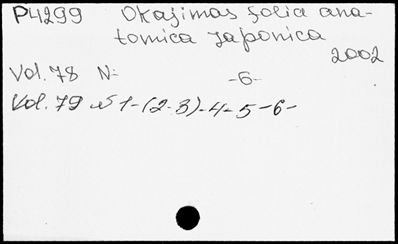 P4299 Okajimas folia ana-
tomica japonica
2002
Vol. 78 N- -6-
Vol. 79 N 1-(2-3)-4-5-6-